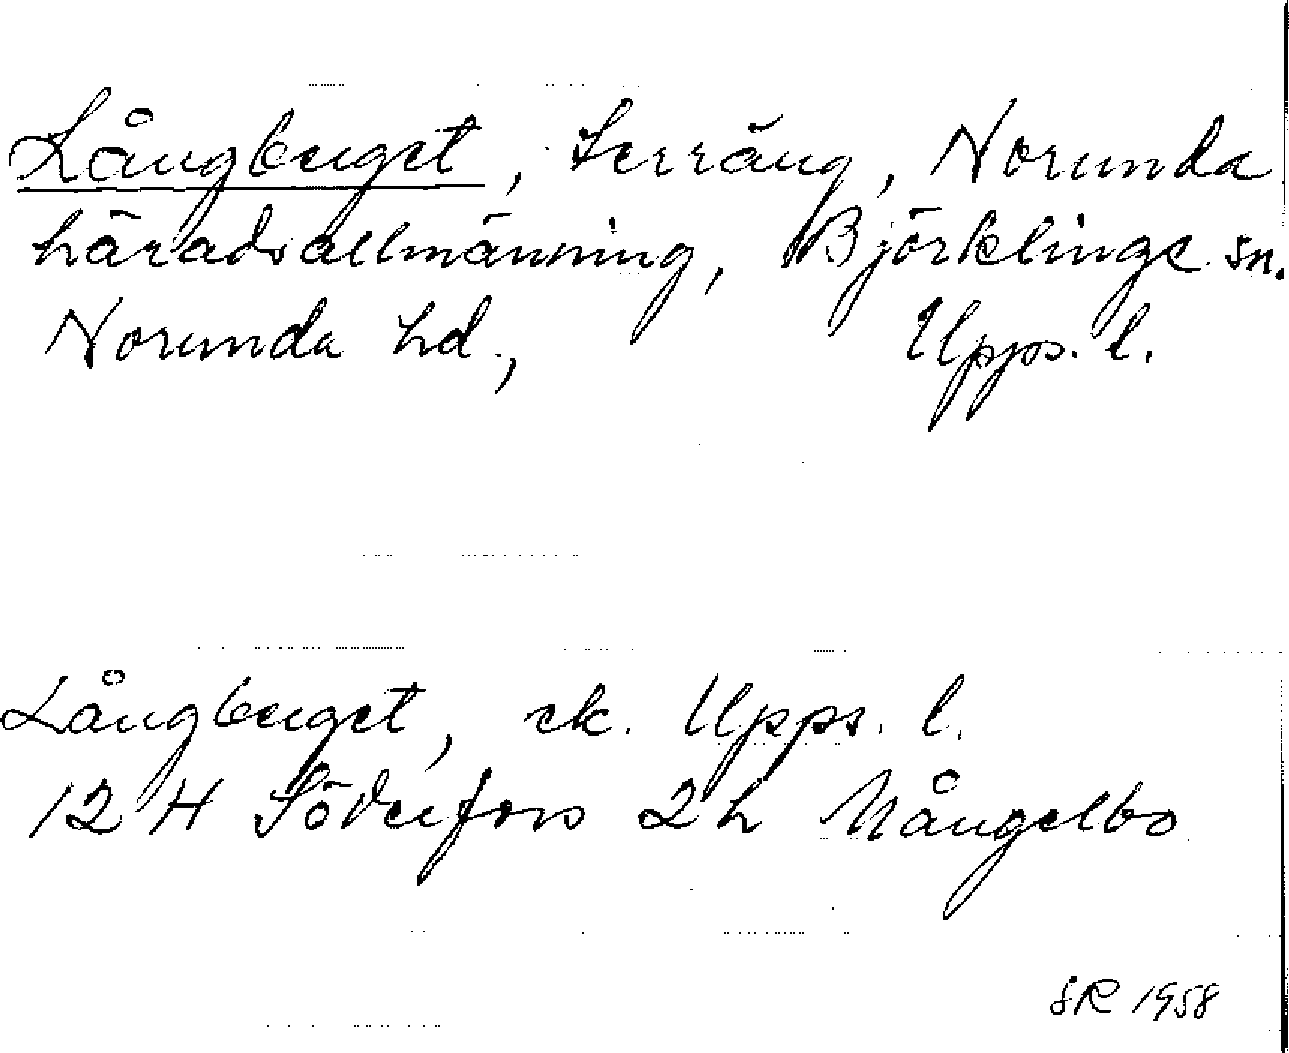 Långberget, Terräng, Norunda
häradsallmänning, Björklinge sn.
Norunda hd., Upps. l.
Långberget, ek. Upps. l.
12 H Söderfors 2h Mångelbo
SR 1958